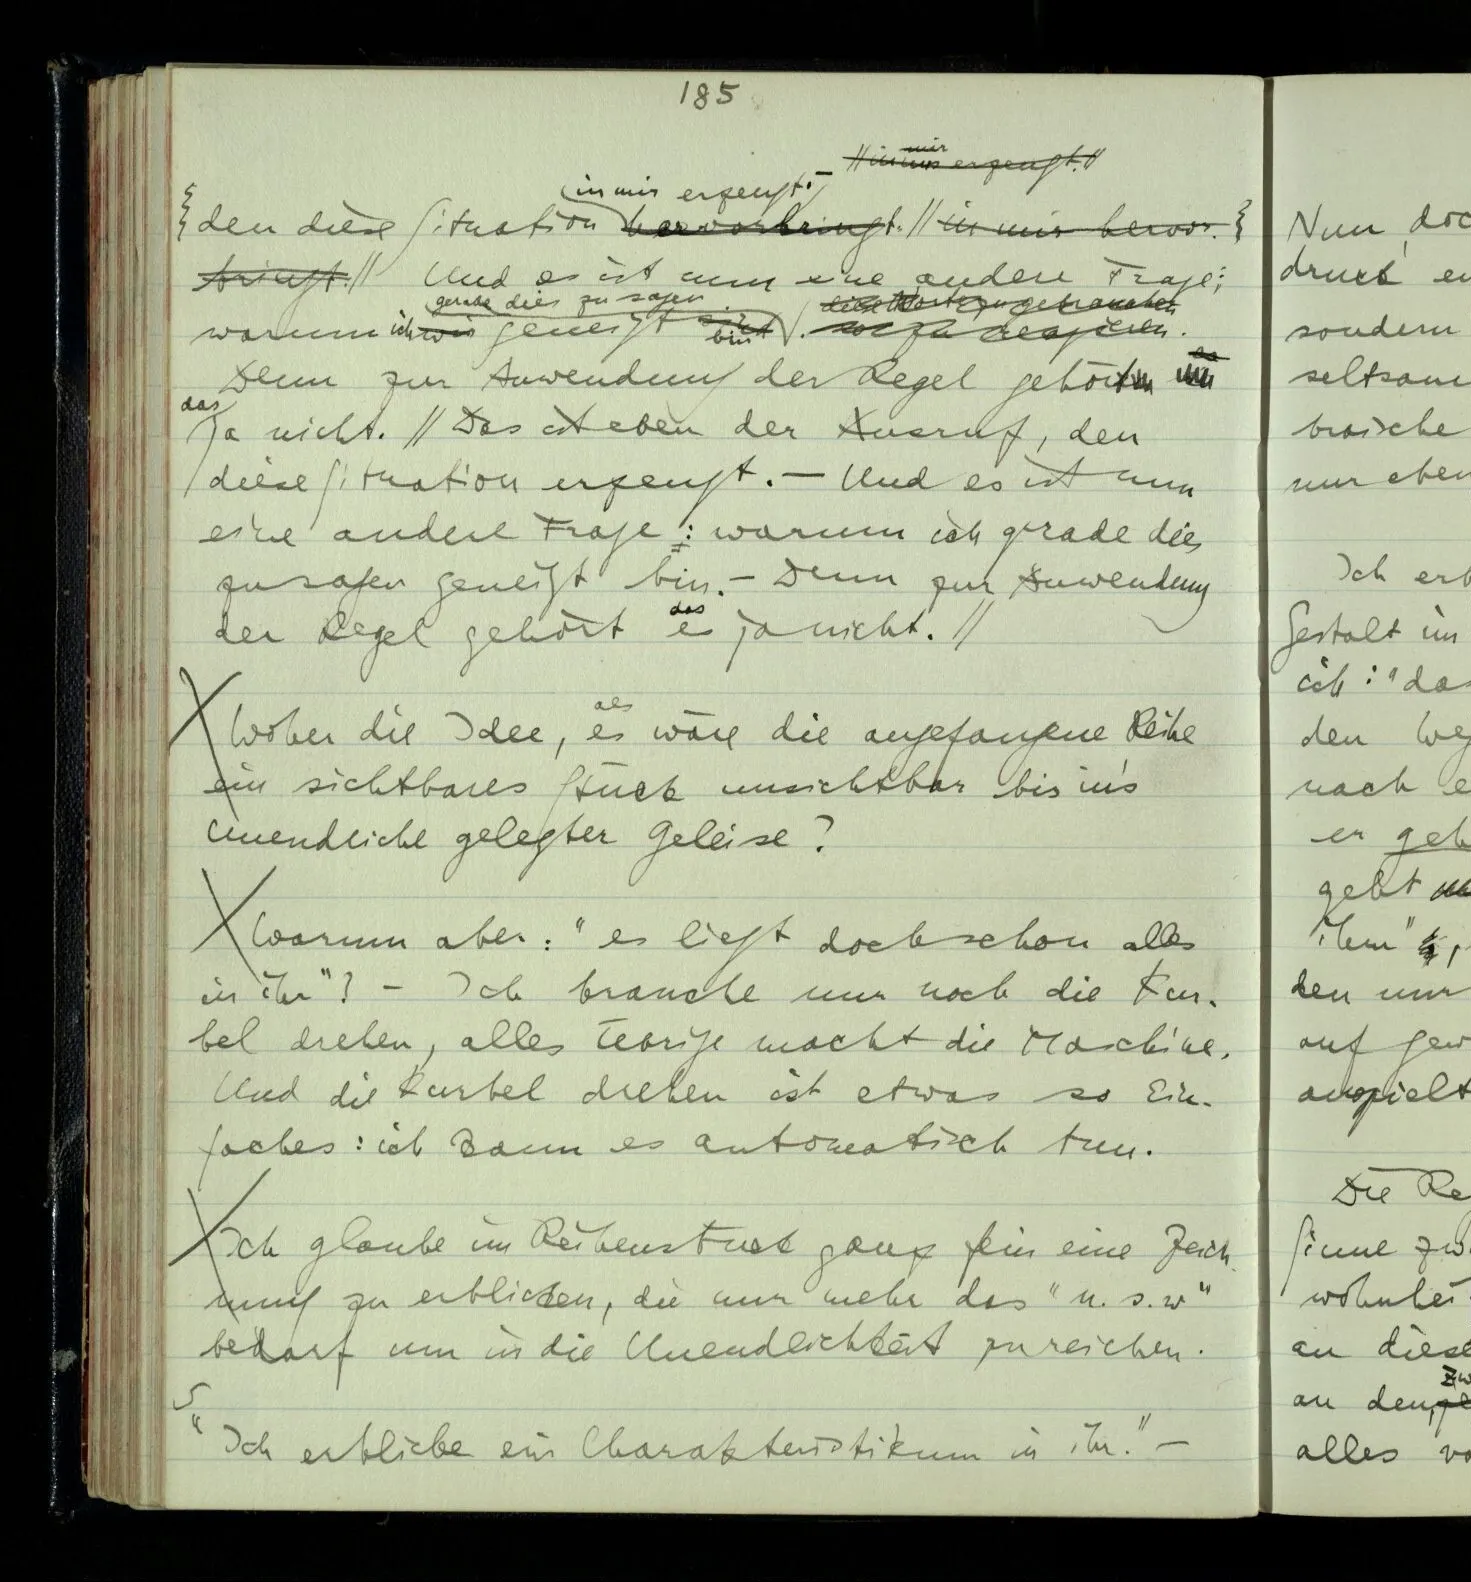 185
//in uns mir erzeugt.//
in mir erzeugt. –
den diese Situation hervorbringt. // in mir hervor-
bringt. // Und es ist nun eine andere Frage;
gerade dies zu sagen diese Worte zu gebrauchen
warum ich wir geneigt sind bin. so zu reagieren.
Denn zur Anwendung der Regel gehört
das
ja nicht. // Das ist eben der Ausruf, den
diese Situation erzeugt. – Und es ist nun
eine andere Frage: warum ich gerade dies
zu sagen geneigt bin. – Denn zur Anwendung
das
der Regel gehört es ja nicht. //
als
Woher die Idee, es wäre die angefangene Reihe
ein sichtbares Stück unsichtbar bis in's
Unendliche gelegter Geleise?
Warum aber: "es liegt doch schon alles
in ihr"? – Ich brauche nur noch die Kur-
bel drehen, alles Uebrige macht die Maschine.
Und die Kurbel drehen ist etwas so Ein-
faches: ich kann es automatisch tun.
Ich glaube im Reihenstück ganz fein eine Zeich-
nung zu erblicken, die nur mehr das "u.s.w"
bedarf um in die Unendlichkeit zu reichen.
S
"Ich erblicke ein Charakteristikum in ihr." –
Nun, doc
druck en
sondern
seltsam
braische
nur eben
Ich erb
Gestalt im
ich: "das
den Weg
nach e
er geh
geht
ihm",
den nur
auf gew
anspielt
Die Re
Sinne zw
wohnhei
an diese
zw
an den
alles vo